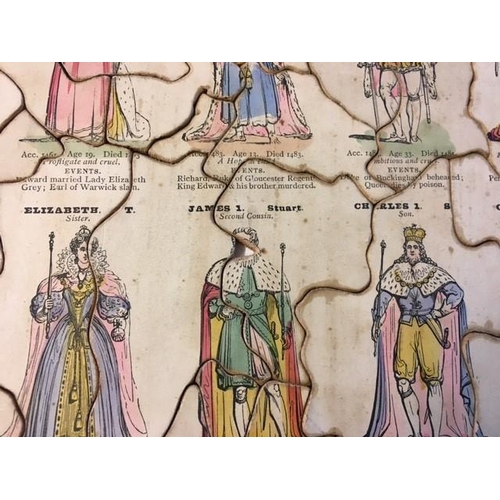 Acc. 1461 Age 19. Died 1483
Profligate and cruel.
EVENTS.
Edward married Lady Elizabeth
Grey; Earl of Warwick slain.
1483. Age 13. Died 1483.
EVENTS.
Richard, Duke of Gloucester Regent
King Edward & his brother murdered.
Acc. 1483 Age 33. Died 1485
Ambitious and cruel.
EVENTS.
Duke of Buckingham beheaded;
Queen dies by poison.
ELIZABETH. T.
Sister.
JAMES 1. Stuart.
Second Cousin.
CHARLES 1. S
Son.